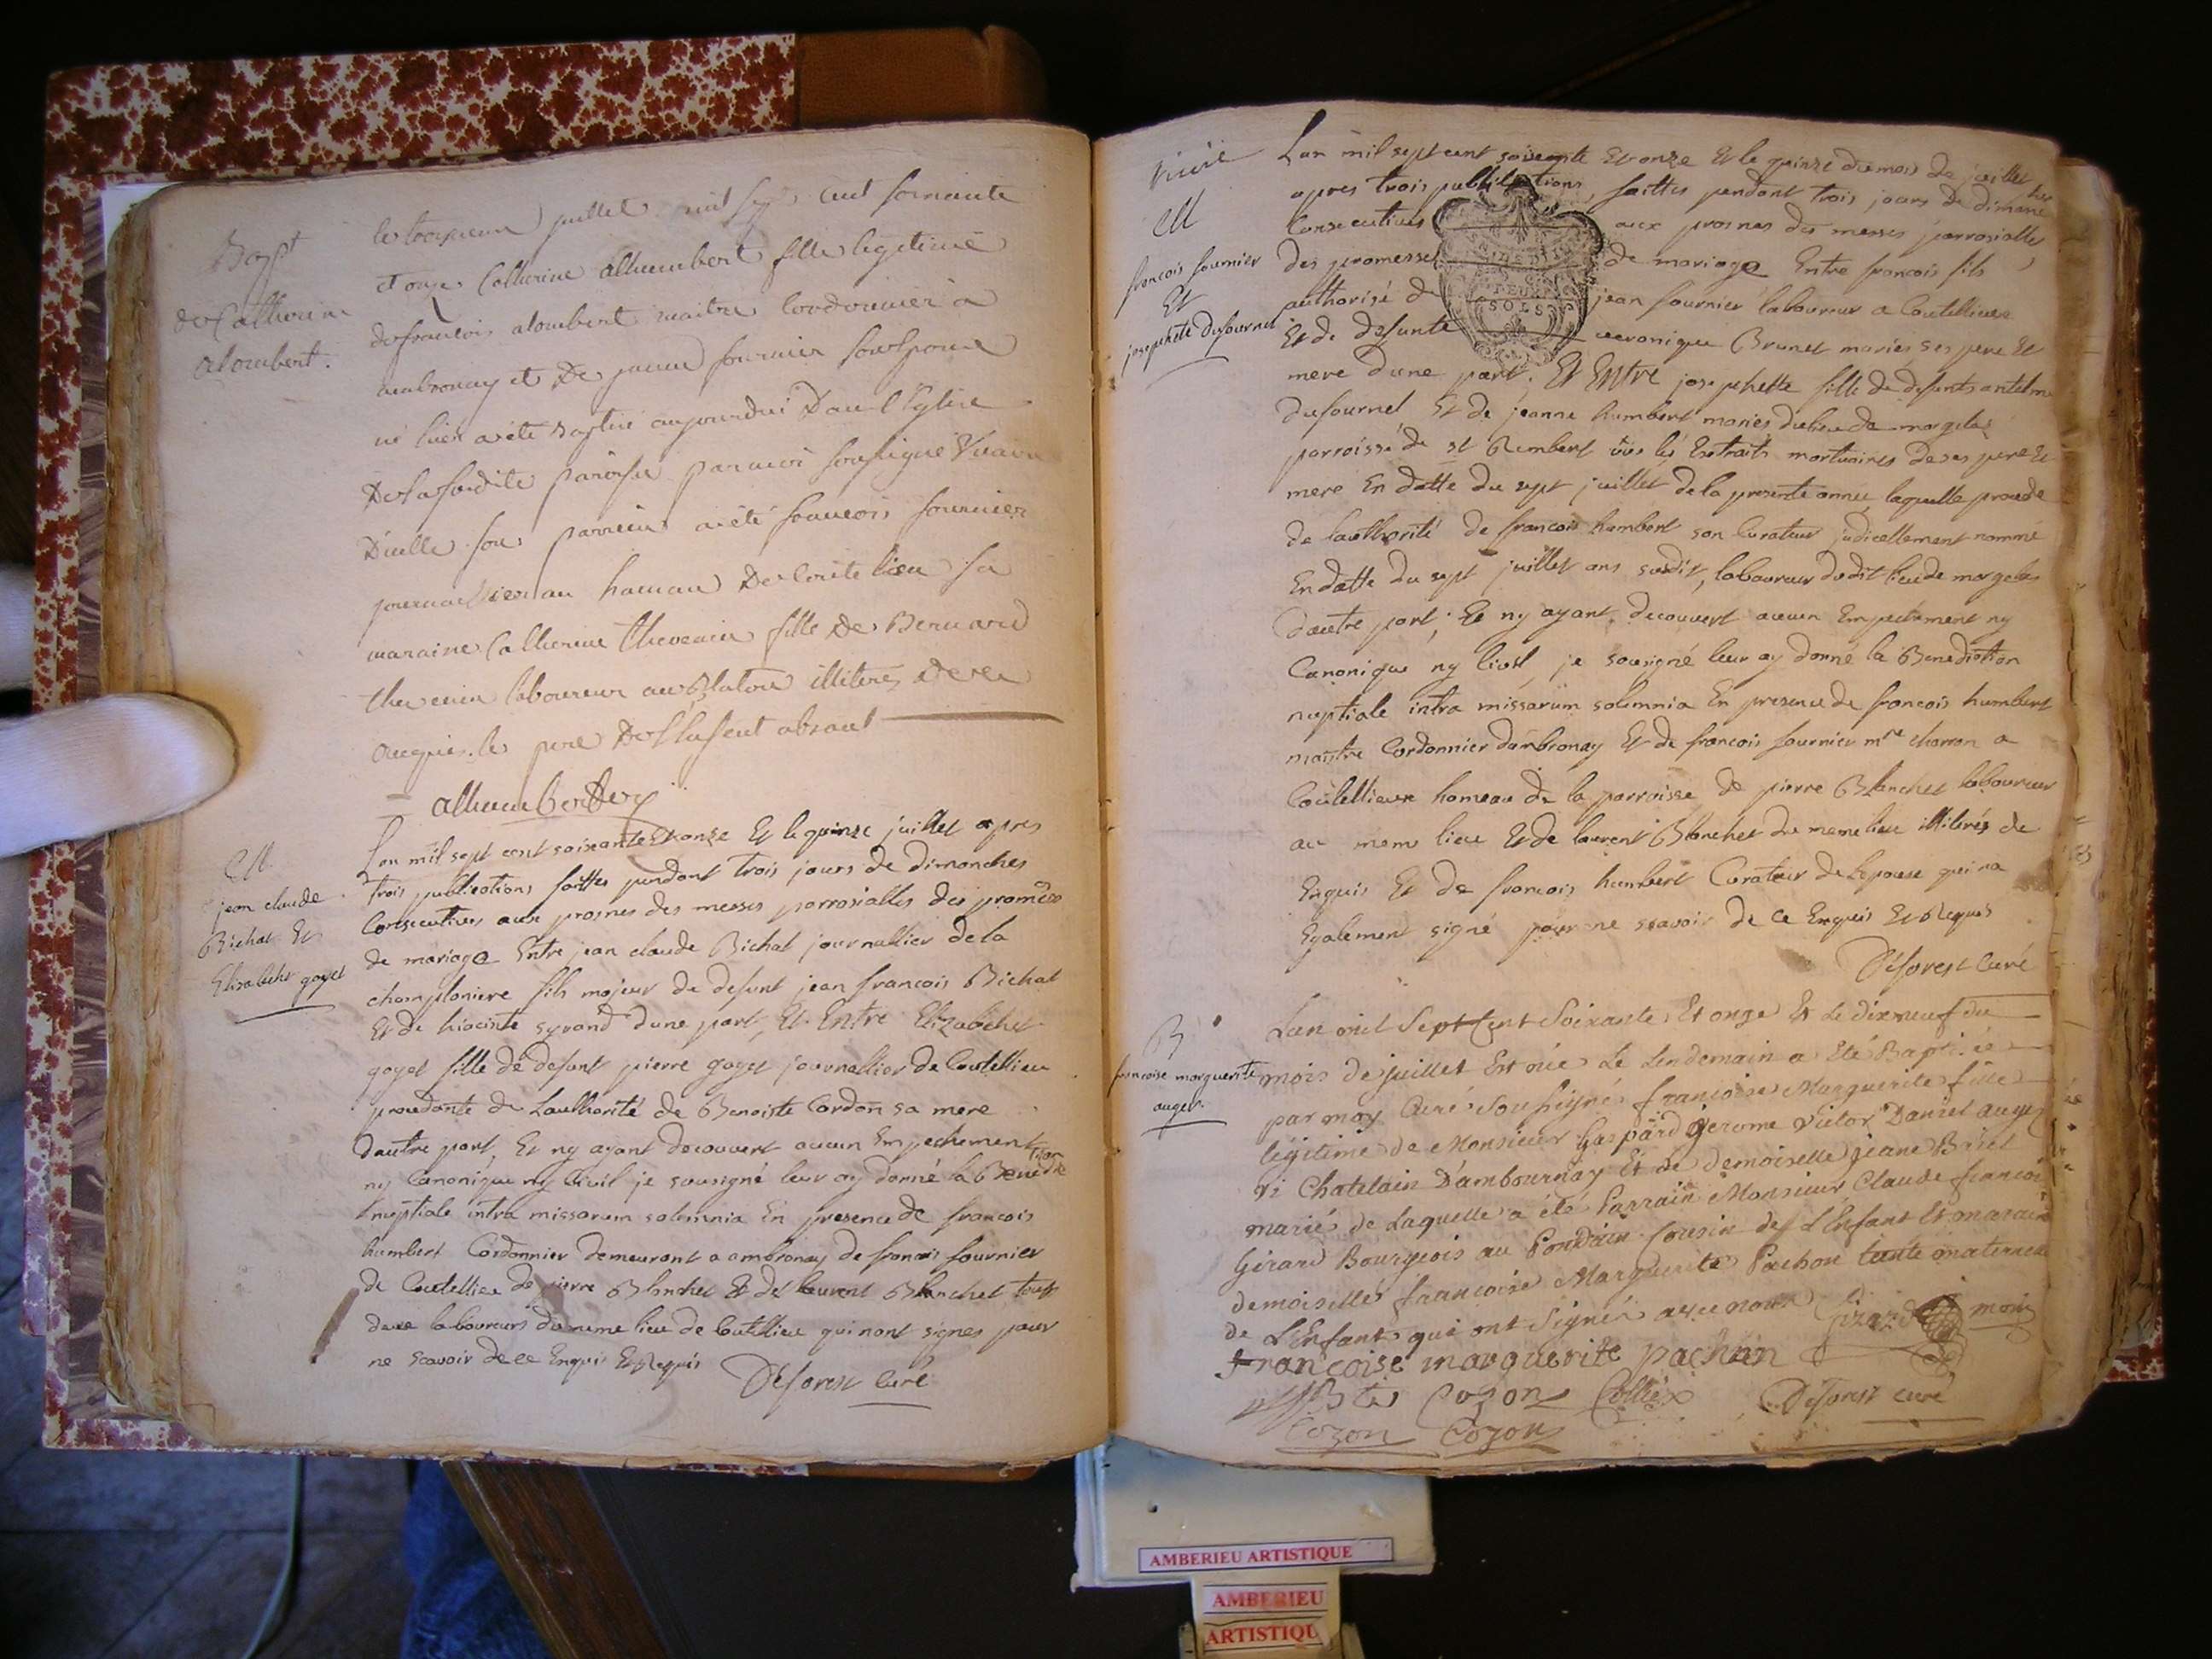 Bapt
de Catherine
alombert.
le troizieme juillet mil sept cent soixante
et onze Catherine allumbert fille legitime
de francois alombert maitre Cordonnier a
ambronay et de jeanne fournier son epouse
né hier a été baptisé aujourdui dans l'Eglise
de la susdite paroisse par moi soussigné Vicaire
d'icelle son parrein a été francois fournier
journallier au hameau de Coutelieu sa
maraine Catherine Thevenin fille de Bernard
thevenin laboureur au illiteres de ce
enquis le pere de l'enfent absant
M
jean claude
Bichat Et
Elisabeht goyet
Lan mil sept cent soixante Et onze Et le quinze juillet apres
trois publications faittes pendant trois jours de dimanches
Consecutives aux prosnes des messes parrosialles des promesses
de mariage Entre jean claude Bichat journallier de la
championiere fils majeur de defunt jean francois Bichat
Et de hiacinte syrand dune part, Et Entre Elizabeht
goyet fille de defunt pierre goyet journallier de Coutellieu
procedante de Lauthorité de Benoiste Cordon sa mere
dautre part, Et ny ayant decouvert aucun Empechement
ny Canonique ny Civil je sousigné leur ay donné la Benediction
nuptiale intra missarum solemnia En presence de francois
humbert Cordonnier demeurant a ambronay de francois fournier
de Coutellieu de pierre Blanchet Et de laurent Blanchet tous
deux laboureurs du meme lieu de Coutellieu qui nont signes pour
ne scavoir de ce Enquis Et Requis
Deforest curé
M
francois fournier
Et
josephete dufournel
Lan mil sept cent soixante Et onze Et le quinze du mois de juillet
apres trois publications, faittes pendant trois jours de dimanches
Consecutives aux prosnes des messes parrosialles
des promesses de mariage Entre francois fils
authorisé de jean fournier laboureur a Coutellieux
Et de defunte veronique Brunet maries ses pere Et
mere dune part, Et Entre josephette fille de defunts antelme
dufournel Et de jeanne humbert maries du lieu de morgelas
parroisse de st Rembert vus les Extraits mortuaires de ses pere Et
mere En datte du sept juillet de la presente année laquelle procede
de lauthorité de francois humbert son Curateur judicellement nommé
En datte du sept juillet ans susdit, laboureur dudit lieu de morgelas
dautre part, Et ny ayant decouvert aucun Empechement ny
Canonique ny Civil, je sousigné leur ay donné la Benediction
nuptiale intra missarum solemnia En presence de francois humbert
maitre Cordonnier dambronay Et de francois fournier mre charron a
Coutellieux hameau de la parroisse de pierre Blanchet laboureur
au meme lieu Et de laurent Blanchet du meme lieu illiterés de
Enquis Et de francois humbert Curateur de lepouse qui na
Egalement signé pour ne scavoir de ce Enquis Et Requis
Deforest Curé
B
francoise marguerite
auger.
Lan mil Sept Cent Soixante Et onze Et Le dixneuf du
mois de juillet Est née Le Lendemain a Eté Baptisée
par moy Curé Soussigné francoise Marguerite fille
légitime de Monsieur Gaspard Gerome Victor Daniel auger
Chatelain D'ambournay Et de demoiselle jeane Briet
mariés de Laquelle a été Parrain Monsieur Claude francois
Girard Bourgeois au Cousin de L'Enfant Et maraine
demoiselle francoise Marguerite Pachon tante maternelle
de L'Enfant qui ont Signés avec nous Girard
francoise marguerite pachon
Cozon Colliex Deforest curé
Cozon Cozon
DEUX
SOLS
AMBERIEU ARTISTIQUE
AMBERIEU
ARTISTIQU